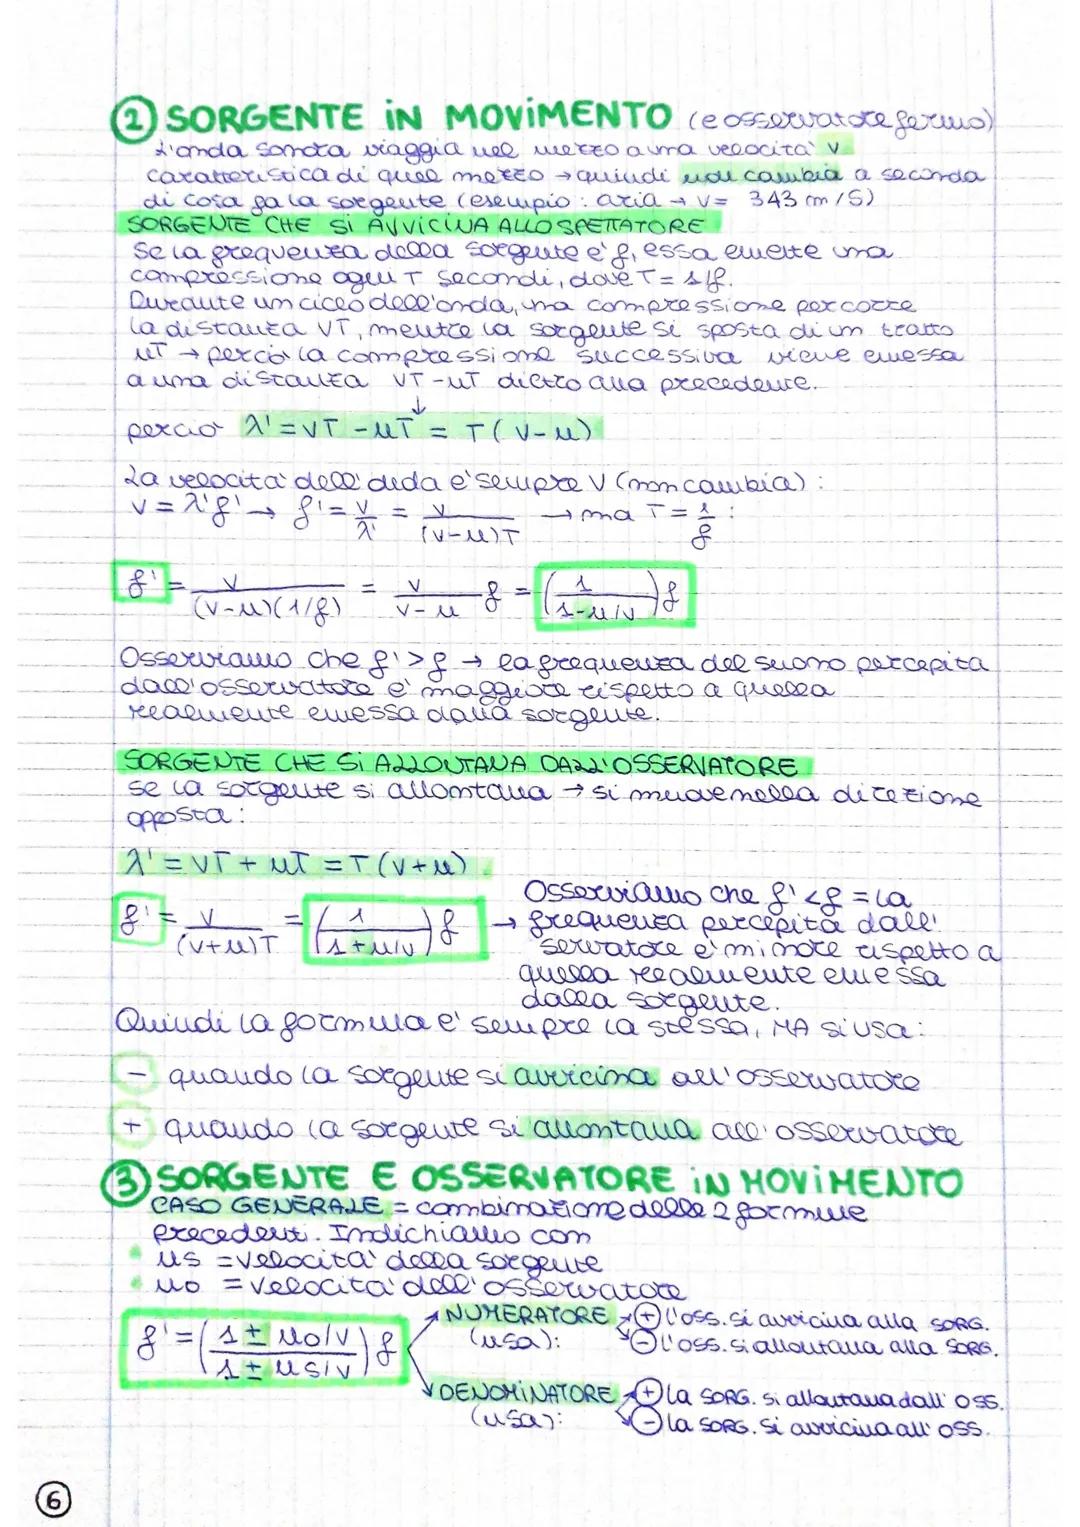 ② SORGENTE IN MOVIMENTO (e osservatore fermo)
L'onda sonora viaggia nel mezzo a una velocità v
caratteristica di quel mezzo → quindi non cambia a seconda
di cosa fa la sorgente (esempio: aria → v = 343 m/s)
SORGENTE CHE SI AVVICINA ALLO SPETTATORE
Se la frequenza della sorgente è f, essa emette una
compressione ogni T secondi, dove T = 1/f.
Durante un ciclo dell'onda, una compressione percorre
la distanza vT, mentre la sorgente si sposta di un tratto
uT → perciò la compressione successiva viene emessa
a una distanza vT - uT dietro alla precedente.
↓
perciò λ' = vT - uT = T(v-u)
La velocità dell'onda è sempre v (non cambia):
v = λ'f' → f' = v/λ' = v/(v-u)T → ma T = 1/f :
f' = v/(v-u)(1/f) = v/v-u f = (1/1-u/v) f
Osserviamo che f' > f → la frequenza del suono percepita
dall'osservatore è maggiore rispetto a quella
realmente emessa dalla sorgente.
SORGENTE CHE SI ALLONTANA DALL'OSSERVATORE
se la sorgente si allontana → si muove nella direzione
opposta:
λ' = vT + uT = T(v+u)
f' = v/(v+u)T = (1/1+u/v) f → Osserviamo che f' < f = la
frequenza percepita dall'
servatore è minore rispetto a
quella realmente emessa
dalla sorgente.
Quindi la formula è sempre la stessa, MA si usa:
- quando la sorgente si avvicina all'osservatore
+ quando la sorgente si allontana all'osservatore
③ SORGENTE E OSSERVATORE IN MOVIMENTO
CASO GENERALE = combinazione delle 2 formule
precedenti. Indichiamo con
• us = velocità della sorgente
• uo = velocità dell'osservatore
f' = (1 ± uo/v / 1 ± us/v) f
NUMERATORE (usa): + l'oss. si avvicina alla SORG.
- l'oss. si allontana alla SORG.
DENOMINATORE (usa): + la SORG. si allontana dall'OSS.
- la SORG. si avvicina all'OSS.
6